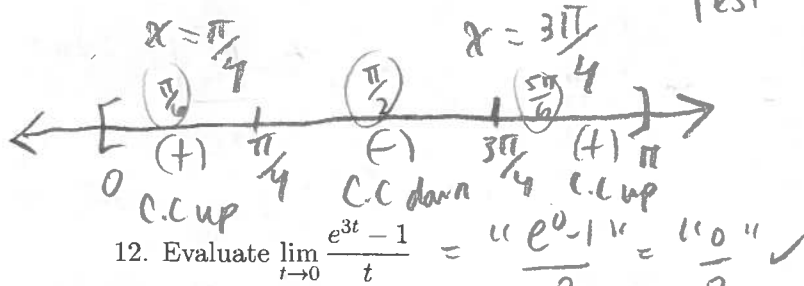 Test
x = π/4 x = 3π/4
π/6 π/2 5π/6
[ (+) π/4 (-) 3π/4 (+) ] π
0 C.C up C.C down C.C up
12. Evaluate lim t→0 (e^{3t} − 1)/t = "e^0-1"/0 = "0"/0 ✓